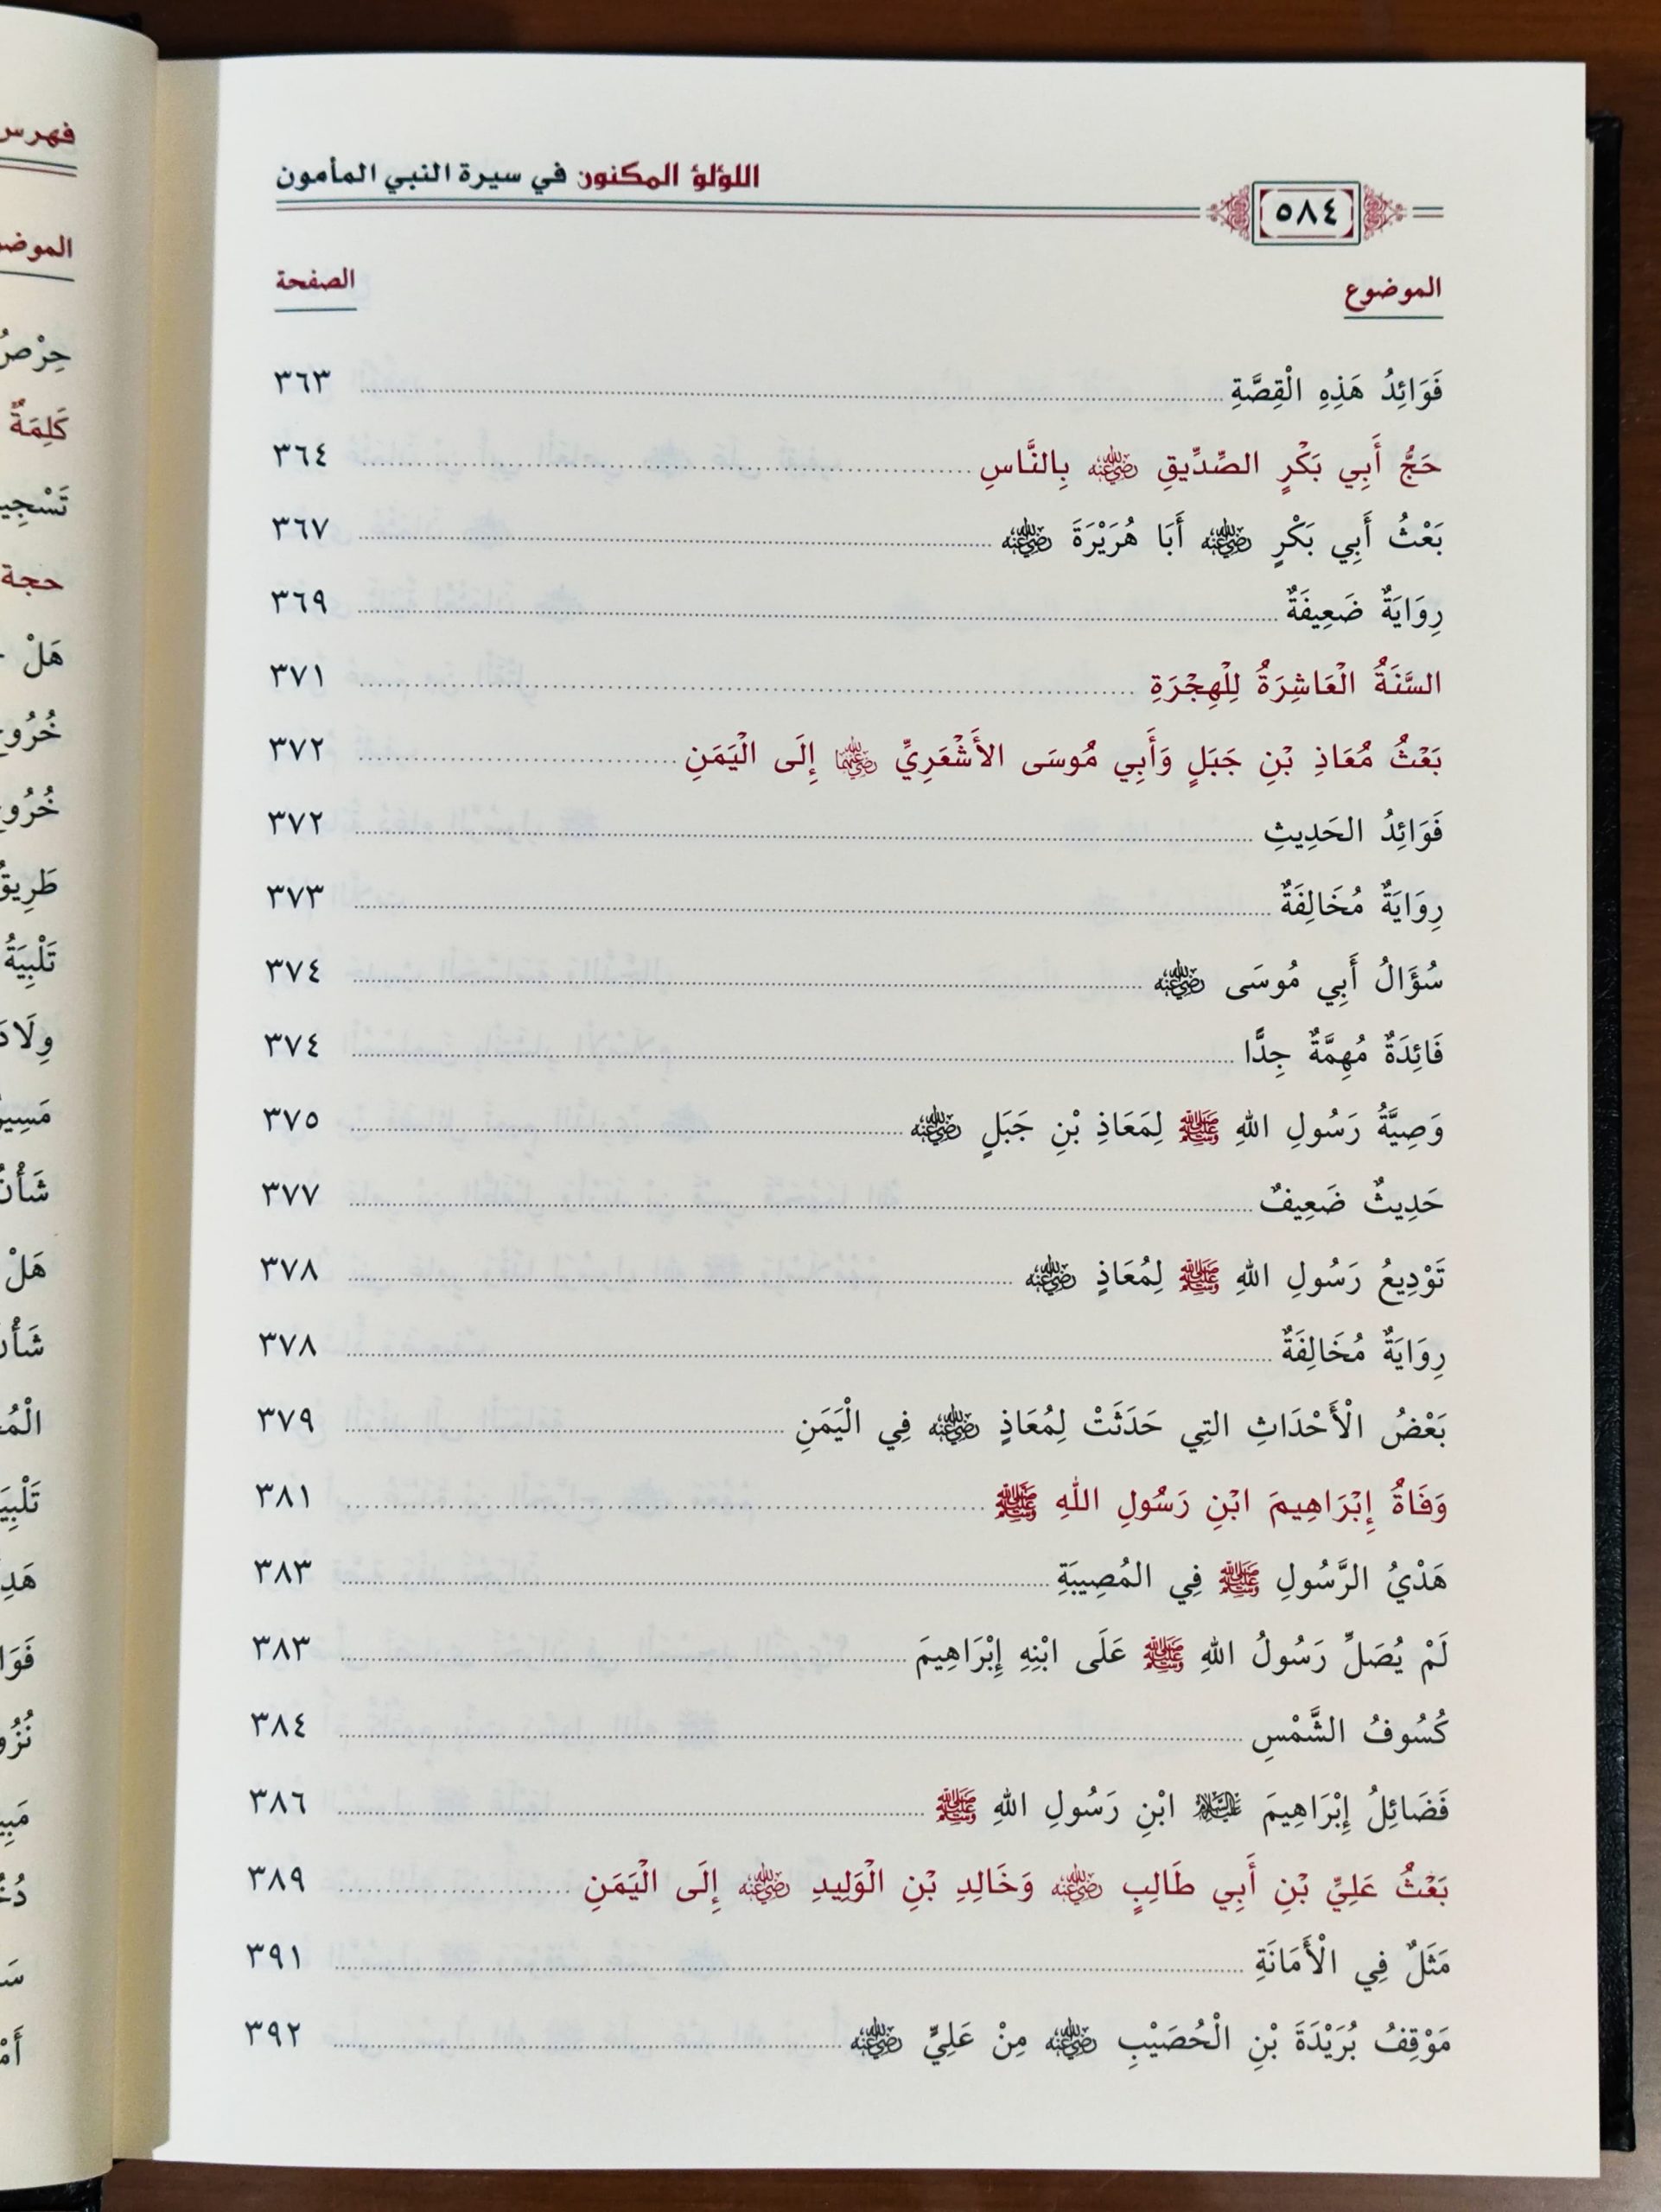 اللؤلؤ المكنون في سيرة النبي المأمون
٥٨٤
الموضوع الصفحة
فَوَائِدُ هَذِهِ الْقِصَّةِ ٣٦٣
حَجُّ أَبِي بَكْرٍ الصِّدِّيقِ رضي الله عنه بِالنَّاسِ ٣٦٤
بَعْثُ أَبِي بَكْرٍ رضي الله عنه أَبَا هُرَيْرَةَ رضي الله عنه ٣٦٧
رِوَايَةٌ ضَعِيفَةٌ ٣٦٩
السَّنَةُ الْعَاشِرَةُ لِلْهِجْرَةِ ٣٧١
بَعْثُ مُعَاذِ بْنِ جَبَلٍ وَأَبِي مُوسَى الأَشْعَرِيِّ رضي الله عنهما إِلَى الْيَمَنِ ٣٧٢
فَوَائِدُ الحَدِيثِ ٣٧٢
رِوَايَةٌ مُخَالِفَةٌ ٣٧٣
سُؤَالُ أَبِي مُوسَى رضي الله عنه ٣٧٤
فَائِدَةٌ مُهِمَّةٌ جِدًّا ٣٧٤
وَصِيَّةُ رَسُولِ اللهِ ﷺ لِمَعَاذِ بْنِ جَبَلٍ رضي الله عنه ٣٧٥
حَدِيثٌ ضَعِيفٌ ٣٧٧
تَوْدِيعُ رَسُولِ اللهِ ﷺ لِمُعَاذٍ رضي الله عنه ٣٧٨
رِوَايَةٌ مُخَالِفَةٌ ٣٧٨
بَعْضُ الْأَحْدَاثِ التِي حَدَثَتْ لِمُعَاذٍ رضي الله عنه فِي الْيَمَنِ ٣٧٩
وَفَاةُ إِبْرَاهِيمَ ابْنِ رَسُولِ اللهِ ﷺ ٣٨١
هَدْيُ الرَّسُولِ ﷺ فِي المُصِيبَةِ ٣٨٣
لَمْ يُصَلِّ رَسُولُ اللهِ ﷺ عَلَى ابْنِهِ إِبْرَاهِيمَ ٣٨٣
كُسُوفُ الشَّمْسِ ٣٨٤
فَضَائِلُ إِبْرَاهِيمَ عليه السلام ابْنِ رَسُولِ اللهِ ﷺ ٣٨٦
بَعْثُ عَلِيِّ بْنِ أَبِي طَالِبٍ رضي الله عنه وَخَالِدِ بْنِ الْوَلِيدِ رضي الله عنه إِلَى الْيَمَنِ ٣٨٩
مَثَلٌ فِي الْأَمَانَةِ ٣٩١
مَوْقِفُ بُرَيْدَةَ بْنِ الْحُصَيْبِ رضي الله عنه مِنْ عَلِيٍّ رضي الله عنه ٣٩٢
فهرس
كَلِمَةٌ
حجة
هَلْ
تَلْبِيَةُ
هَلْ